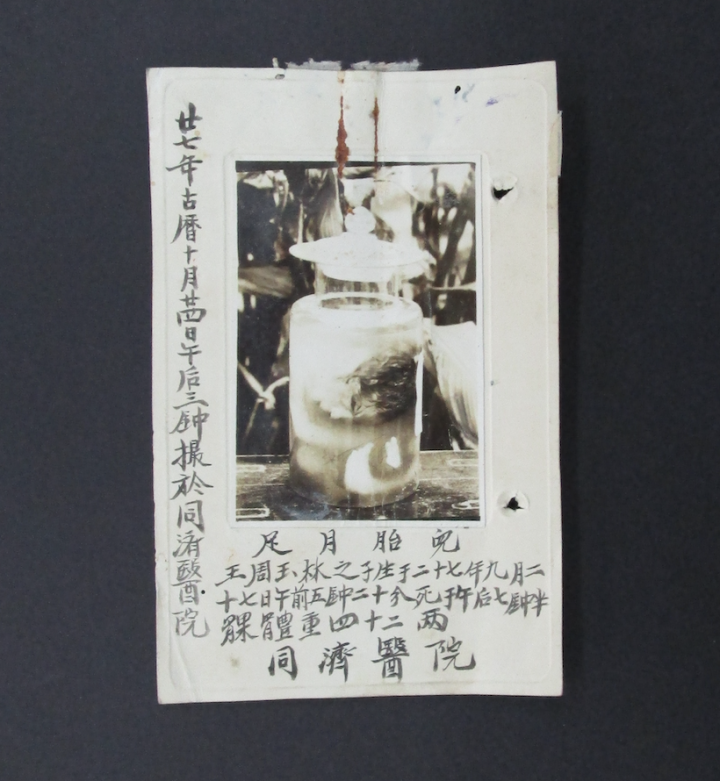 廿七年古曆十月廿四日午后三鈡撮於同濟醫院
足月胎兒
王周玉林之子生于二十七年九月二
十七日午前五鈡二十分死于午后七鈡半
髁體重四十二两
同濟醫院